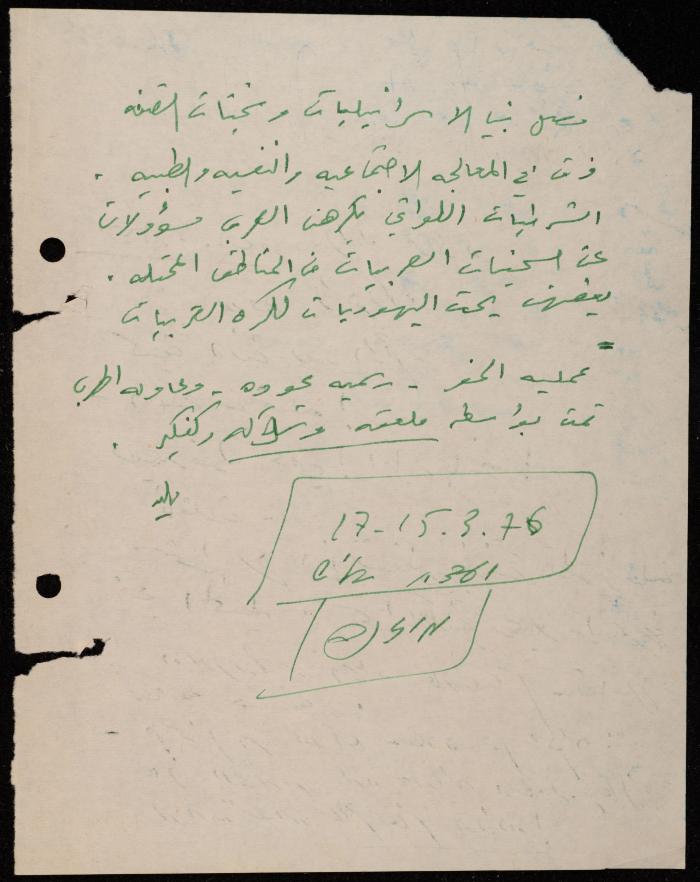 فصل بين الاسرائيليات وسجينات الضفه
فرق في المعالجه الاجتماعيه والنفسيه والطبيه .
الشرطيات اللواتي يكرهن العرب مسؤولات
عن السجينات العربيات من المناطق المحتله .
بعضهن يحث اليهوديات لكره العربيات
=
عمليه الحفر - رسميه عوده - ومحاوله الهرب
تمت بواسطه ملعقه و
يليه
17-15.3.76